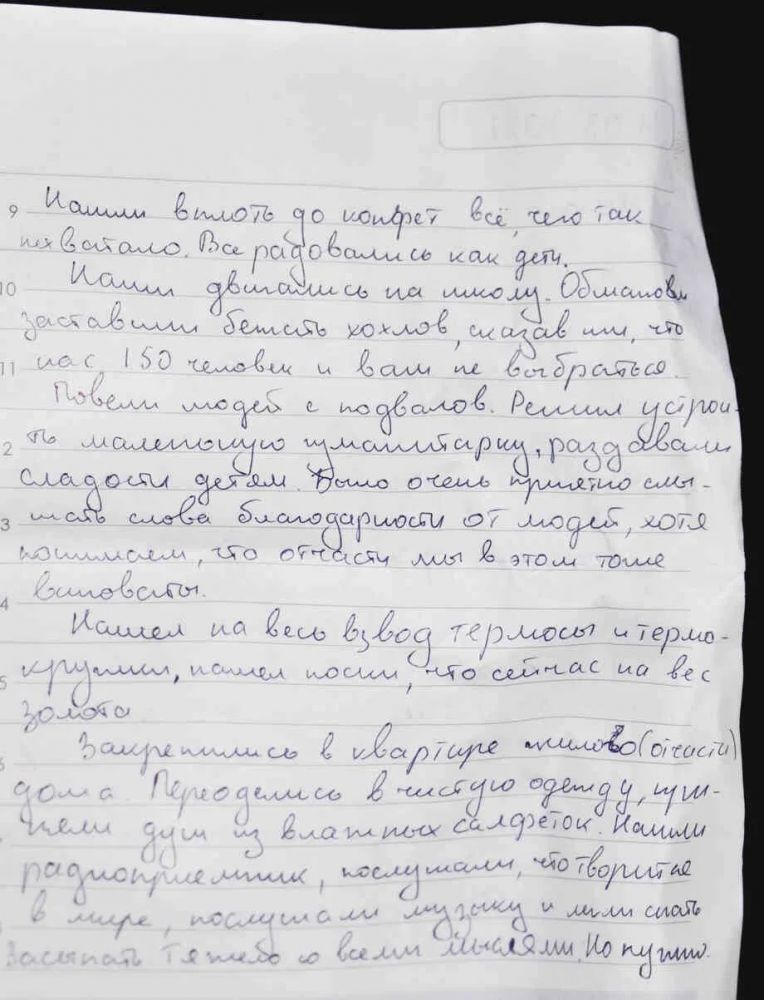 9 Нашли вплоть до конфет всё, чего так
нехватало. Все радовались как дети.
10 Наши двигались на школу. Обманом
заставили бежать хохлов, сказав им, что
11 нас 150 человек и вам не выбраться.
Повели людей с подвалов. Решил устрои-
2 ть маленькую гуманитарку, раздавали
сладости детям. Было очень приятно слы-
3 шать слова благодарности от людей, хотя
понимаем, что отчасти мы в этом тоже
4 виноваты.
Нашел на весь взвод термосы и термо-
5 кружки, нашел носки, что сейчас на вес
золота
6 Закрепились в квартире жилого (отчасти)
дома. Переоделись в чистую одежду, при-
няли душ из влажных салфеток. Нашли
радиоприемник, послушали, что творится
в мире, послушали музыку и легли спать
Засыпать тяжело со всеми мыслями. Но нужно.